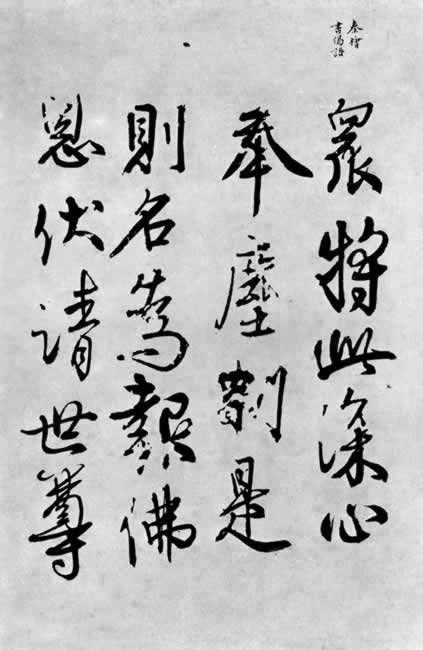 秦檜
書偈語
眾將此深心
奉塵剎是
則名為報佛
恩伏請世尊